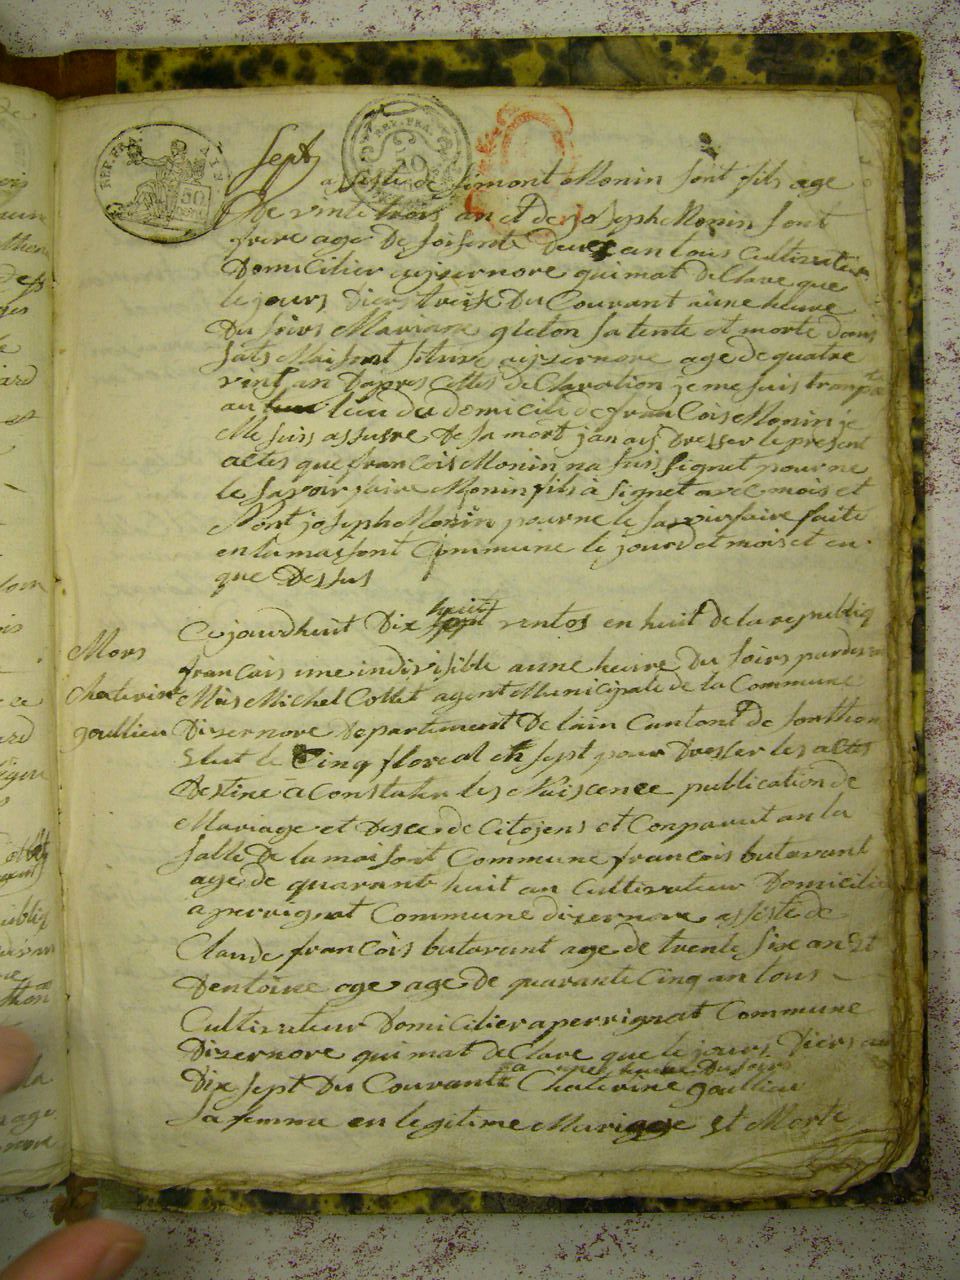 REP. FRA.
50
REP. FRA.
Sept
assisté de Simont Monin sont fils age
De vint trois an et de joseph Monin sont
frere age De soisente Deux an tous Cultivateur
Domicilier aissernore qui mat De Clare que
le jours Diers treise Du Courant a une heure
Du soirs Mariane gleton sa tente et morte dans
sats Maisont situré aissernore age de quatre
vint an Dapres cettes de Claration je me suis tranp
au lieu du domicile de franCois Monin je
Me suis assusre De sa mort jan ais Dresser le present
actes que francois Monin na suis signet pour ne
le savoir faire Monin fils à signet avec mois et
Nont joseph Monin pour ne le savoir faire faite
en la maisont Commune le jourd et mois et en
que Dessus
Mors
Chaterine
goullieu
Ce jourdhuit Dix huit ventos en huit de la republiq
francais une indivisible a une heure Du soirs pardevan
Mois Michel Collet agent Municipale de la Commune
Disernore Departement De lain Cantont de sonthon
Elut le Cinq floreal en sept pour Dresser les actes
Destine a Constater les Naiscence publication de
Mariage et Desce de Citojens et Conparut an la
salle De la maisont Commune francois butavant
age de quarante huit an Cultivateur Domicilie
a perrignat Commune disernore assisté de
Claude franCois butavant age de trente sixe an Et
Dentoine age age de quarante Cinq an tous
Cultivateur Domicilier a perrignat Commune
Disernore qui mat de Clare que le jours Diers
Dix sept Du Courant a une heure Du soir Chaterine goullieu
sa femme en legitime Mariage Et Morte